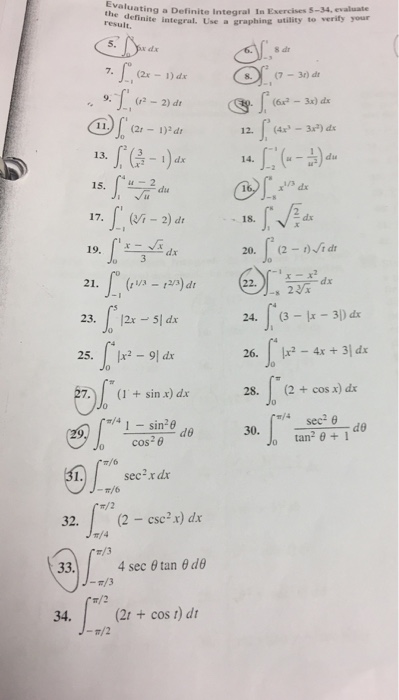 Evaluating a Definite Integral In Exercises 5–34, evaluate
the definite integral. Use a graphing utility to verify your
result.
5. dx
6. ∫ 8 dt
7. ∫_{-1}^{0} (2x − 1) dx
8. ∫_{-1}^{2} (7 − 3t) dt
9. ∫_{-1}^{1} (t² − 2) dt
10. ∫_{1}^{2} (6x² − 3x) dx
11. ∫_{0}^{1} (2t − 1)² dt
12. ∫_{1}^{3} (4x³ − 3x²) dx
13. ∫_{1}^{2} (3/x² − 1) dx
14. ∫_{-2}^{-1} (u − 1/u²) du
15. ∫_{1}^{4} (u − 2)/√u du
16. ∫_{-8}^{8} x^{1/3} dx
17. ∫_{-1}^{1} (∛t − 2) dt
18. ∫_{1}^{8} √(2/x) dx
19. ∫_{0}^{1} (x − √x)/3 dx
20. ∫_{0}^{2} (2 − t)√t dt
21. ∫_{-1}^{0} (t^{1/3} − t^{2/3}) dt
22. ∫_{-8}^{-1} (x − x²)/(2∛x) dx
23. ∫_{0}^{5} |2x − 5| dx
24. ∫_{1}^{4} (3 − |x − 3|) dx
25. ∫_{0}^{4} |x² − 9| dx
26. ∫_{0}^{4} |x² − 4x + 3| dx
27. ∫_{0}^{π} (1 + sin x) dx
28. ∫_{0}^{π} (2 + cos x) dx
29. ∫_{0}^{π/4} (1 − sin²θ)/(cos²θ) dθ
30. ∫_{0}^{π/4} (sec² θ)/(tan² θ + 1) dθ
31. ∫_{-π/6}^{π/6} sec² x dx
32. ∫_{π/4}^{π/2} (2 − csc² x) dx
33. ∫_{-π/3}^{π/3} 4 sec θ tan θ dθ
34. ∫_{-π/2}^{π/2} (2t + cos t) dt